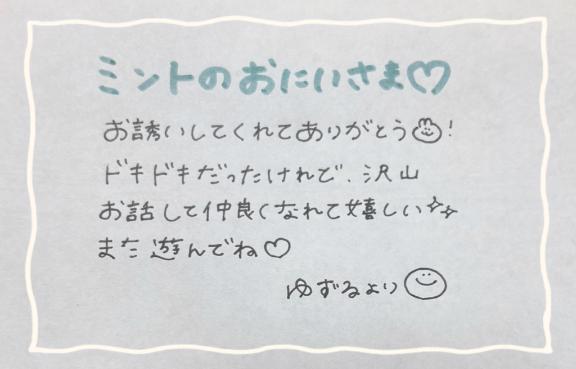 ミントのおにいさま♡
お誘いしてくれてありがとう!
ドキドキだったけれど、沢山
お話して仲良くなれて嬉しい✨
また遊んでね♡
ゆずるより